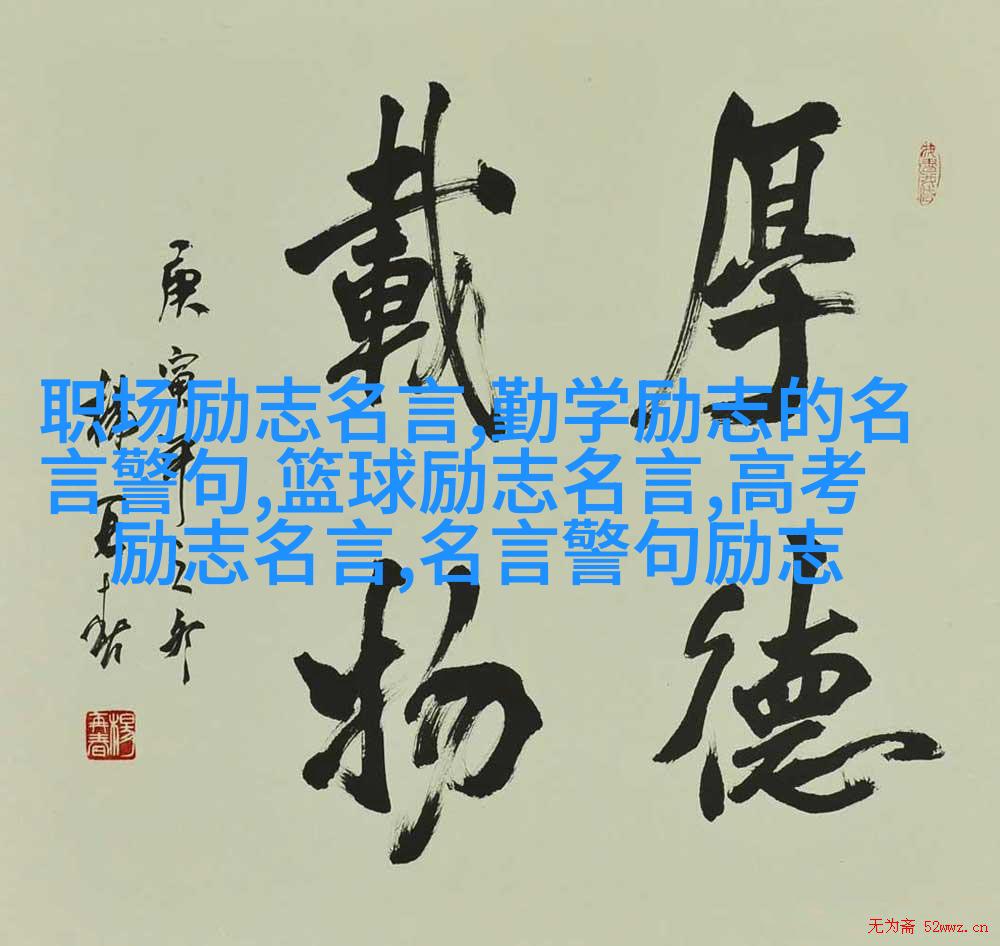 厚德
載物
庚寅年
楊再春
楊再春
职场励志名言,勤学励志的名
言警句,篮球励志名言,高考
励志名言,名言警句励志
无为斋 52wwz.cn